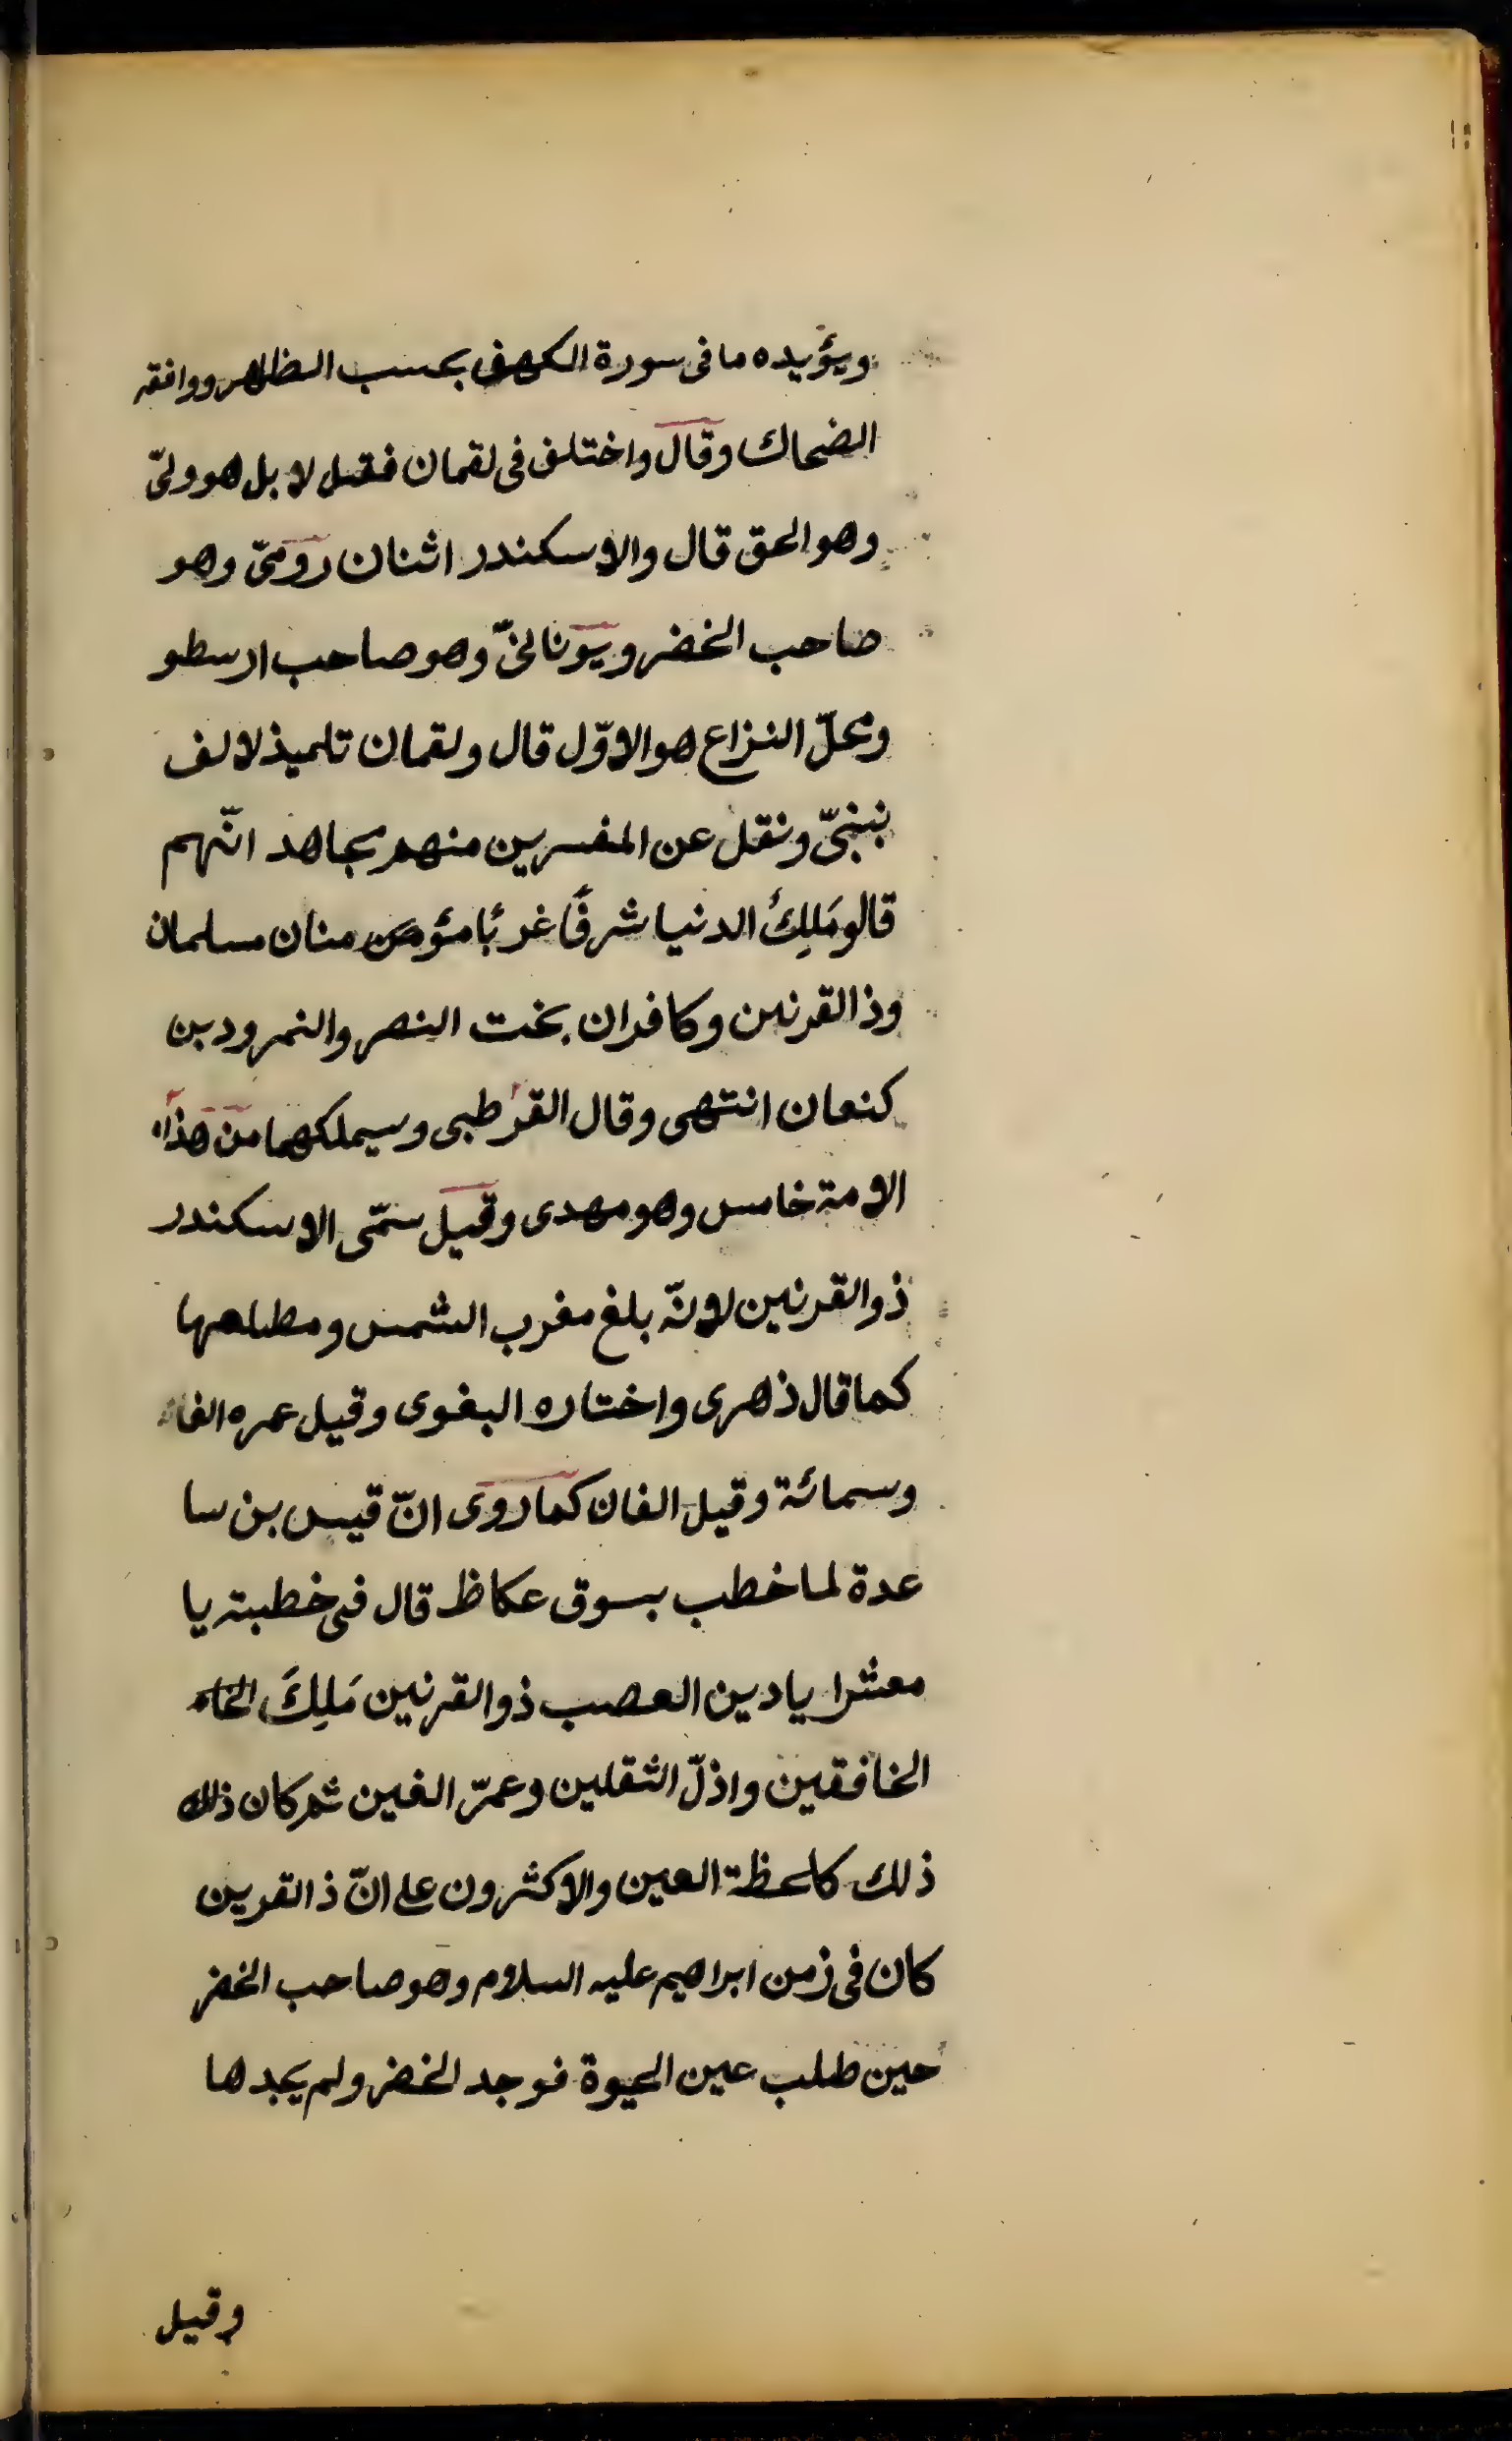 ويؤيده ما فى سورة الكهف بحسب الظاهر ووافقه
الضحاك وقال واختلف فى لقمان فقيل لا بل هو ولىّ
وهو الحق قال والاسكندر اثنان رومىّ وهو
صاحب الخضر ويونانىّ وهو صاحب ارسطو
ومحلّ النزاع هو الاوّل قال ولقمان تلميذ لالف
نبىّ ونقل عن المفسرين منهم مجاهد انّهم
قالو مَلِكُ الدنيا شرقًا غربًا مؤمن منان مسلمان
وذالقرنين وكافران بخت النصر والنمرود بن
كنعان انتهى وقال القرطبى وسيملكهما من هذا
الامة خامس وهو مهدى وقيل سمّى الاسكندر
ذوالقرنين لانّه بلغ مغرب الشمس ومطلعها
كما قال ذهرى واختاره البغوى وقيل عمره الفا
وسمائة وقيل الفان كما روى انّ قيس بن سا
عدة لما خطب بسوق عكاظ قال فى خطبته يا
معشر ايادين الصعب ذوالقرنين مَلِكَ
الخافقين واذلّ الثقلين وعمّر الفين ثم كان ذلك
ذلك كلحظة العين والاكثرون على انّ ذالقرين
كان فى زمن ابراهيم عليه السلام وهو صاحب الخضر
حين طلب عين الحيوة فوجد الخضر ولم يجدها
وقيل